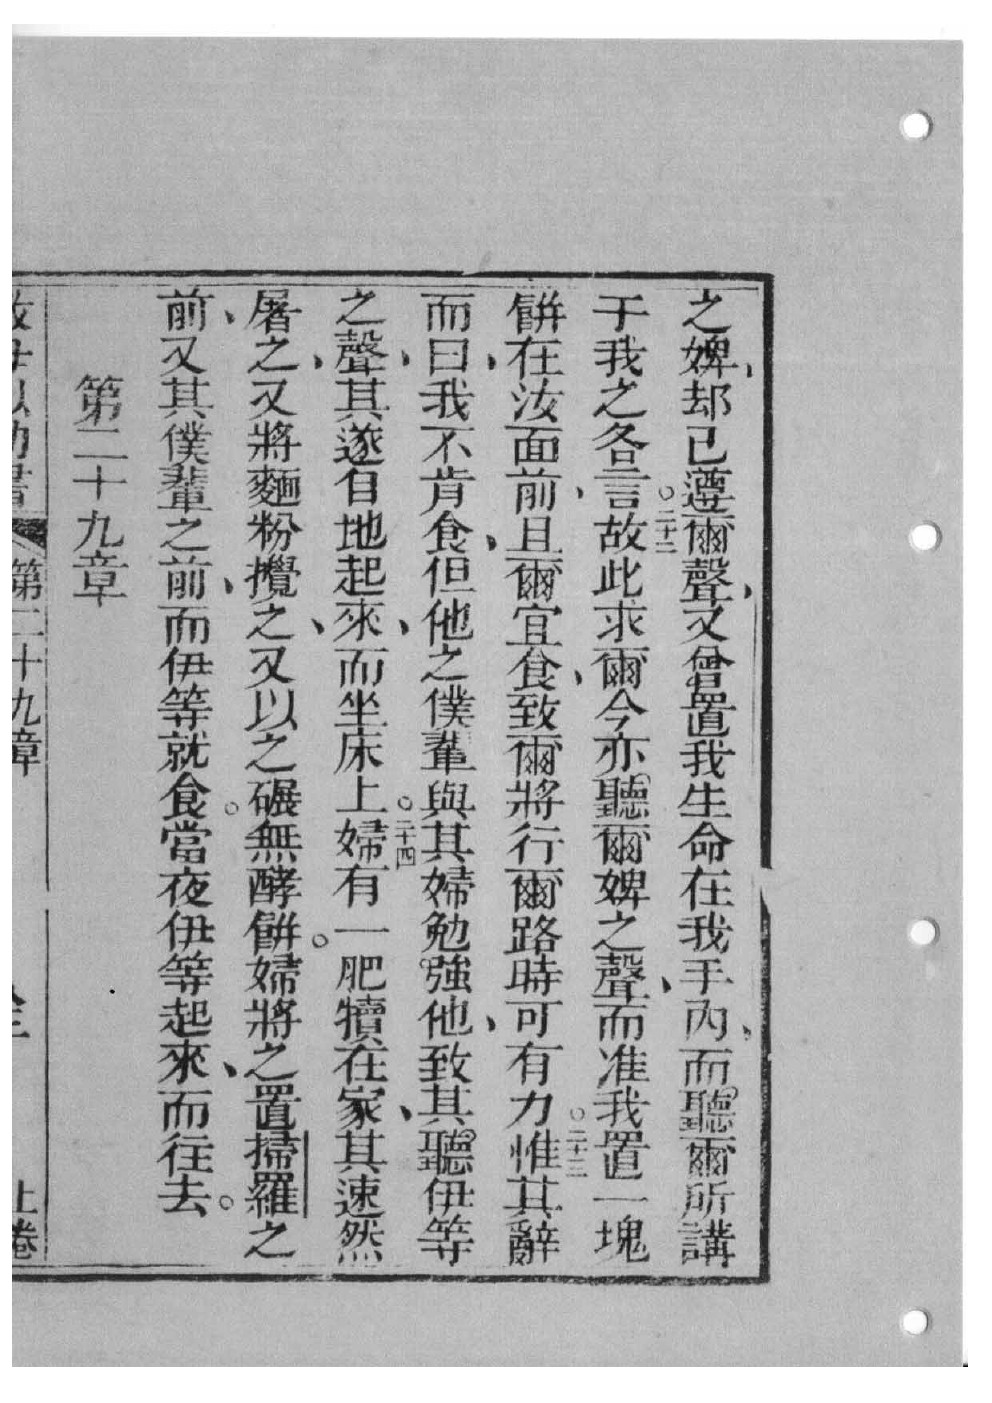 之婢、却已遵爾聲、又曾置我生命在我手內、而聽爾所講
于我之各言。二十二故此求爾今亦聽爾婢之聲、而准我置一塊
餅在汝面前、且爾宜食、致爾將行爾路時可有力。二十三惟其辭
而曰、我不肯食、但他之僕輩與其婦勉強他、致其聽伊等
之聲、其遂自地起來、而坐床上。二十四婦有一肥犢在家、其速然
屠之、又將麵粉攪之、又以之碾無酵餅。婦將之置掃羅之
前、又其僕輩之前、而伊等就食。當夜伊等起來、而往去。
第二十九章
第二十九章
上卷